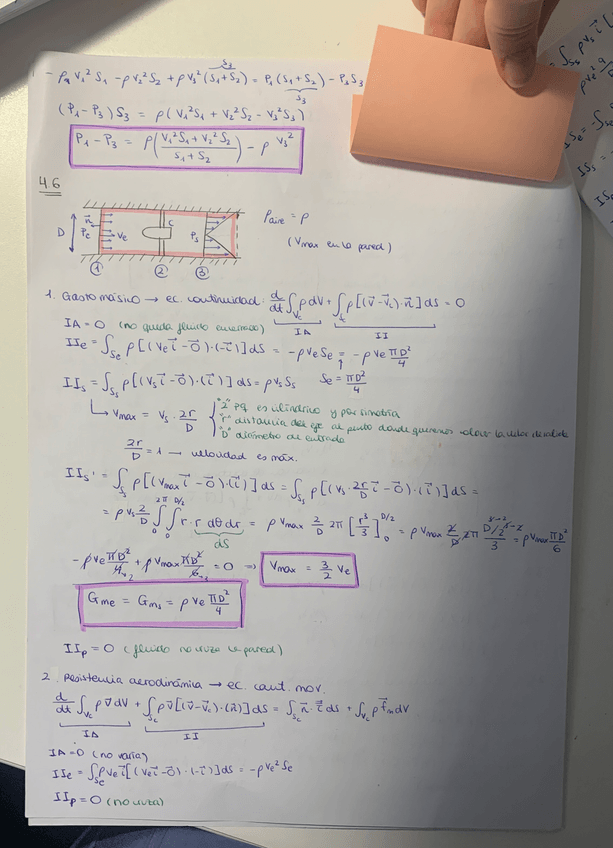 - ρ₁ V₁² S₁ - ρ V₂² S₂ + ρ V₃² (S₁+S₂) = P₁ (S₁+S₂) - P₃ S₃
S₃
S₃
(P₁ - P₃) S₃ = ρ ( V₁² S₁ + V₂² S₂ - V₃² S₃ )
P₁ - P₃ = ρ ( (V₁² S₁ + V₂² S₂) / (S₁ + S₂) ) - ρ V₃²
4.6
D n⃗ Pe Ve C Ps
① ② ③
ρaire = ρ
(Vmax en la pared)
1. Gasto másico → ec. continuidad: d/dt ∫Vc ρ dV + ∫Sc ρ [(v⃗ - v⃗c)·n⃗] dS = 0
IA II
IA = 0 (no queda fluido encerrado)
IIe = ∫Se ρ [(Ve i⃗ - 0⃗)·(-i⃗)] dS = -ρ Ve Se = -ρ Ve πD²/4
Se = πD²/4
IIs = ∫Ss ρ [(Vs i⃗ - 0⃗)·(i⃗)] dS = ρ Vs Ss
↳ Vmax = Vs · 2r/D { "2" pq es cilíndrico y por simetría
"r" distancia del eje al punto donde queremos la de salida
"D" diámetro de entrada
2r/D = 1 → velocidad es máx.
IIs' = ∫Ss ρ [(Vmax i⃗ - 0⃗)·(i⃗)] dS = ∫Ss ρ [(Vs · 2r/D i⃗ - 0⃗)·(i⃗)] dS =
= ρ Vs 2/D ∫₀^2π ∫₀^D/2 r · r dθ dr = ρ Vmax 2/D 2π [r³/3]₀^D/2 = ρ Vmax 2/D 2π = ρ Vmax πD²/6
dS
-ρ Ve πD²/4 + ρ Vmax πD²/6 = 0 ⇒ Vmax = 3/2 Ve
Gme = Gms = ρ Ve πD²/4
IIp = 0 (fluido no cruza la pared)
2. Resistencia aerodinámica → ec. cant. mov.
d/dt ∫Vc ρ v⃗ dV + ∫Sc ρ v⃗ [(v⃗ - v⃗c)·(n⃗)] dS = ∫Sc n⃗ · τ⃗ dS + ∫Vc ρ f⃗m dV
IA II
IA = 0 (no varía)
IIe = ∫Se ρ Ve i⃗ [(Ve i⃗ - 0⃗)·(-i⃗)] dS = -ρ Ve² Se
IIp = 0 (no cruza)